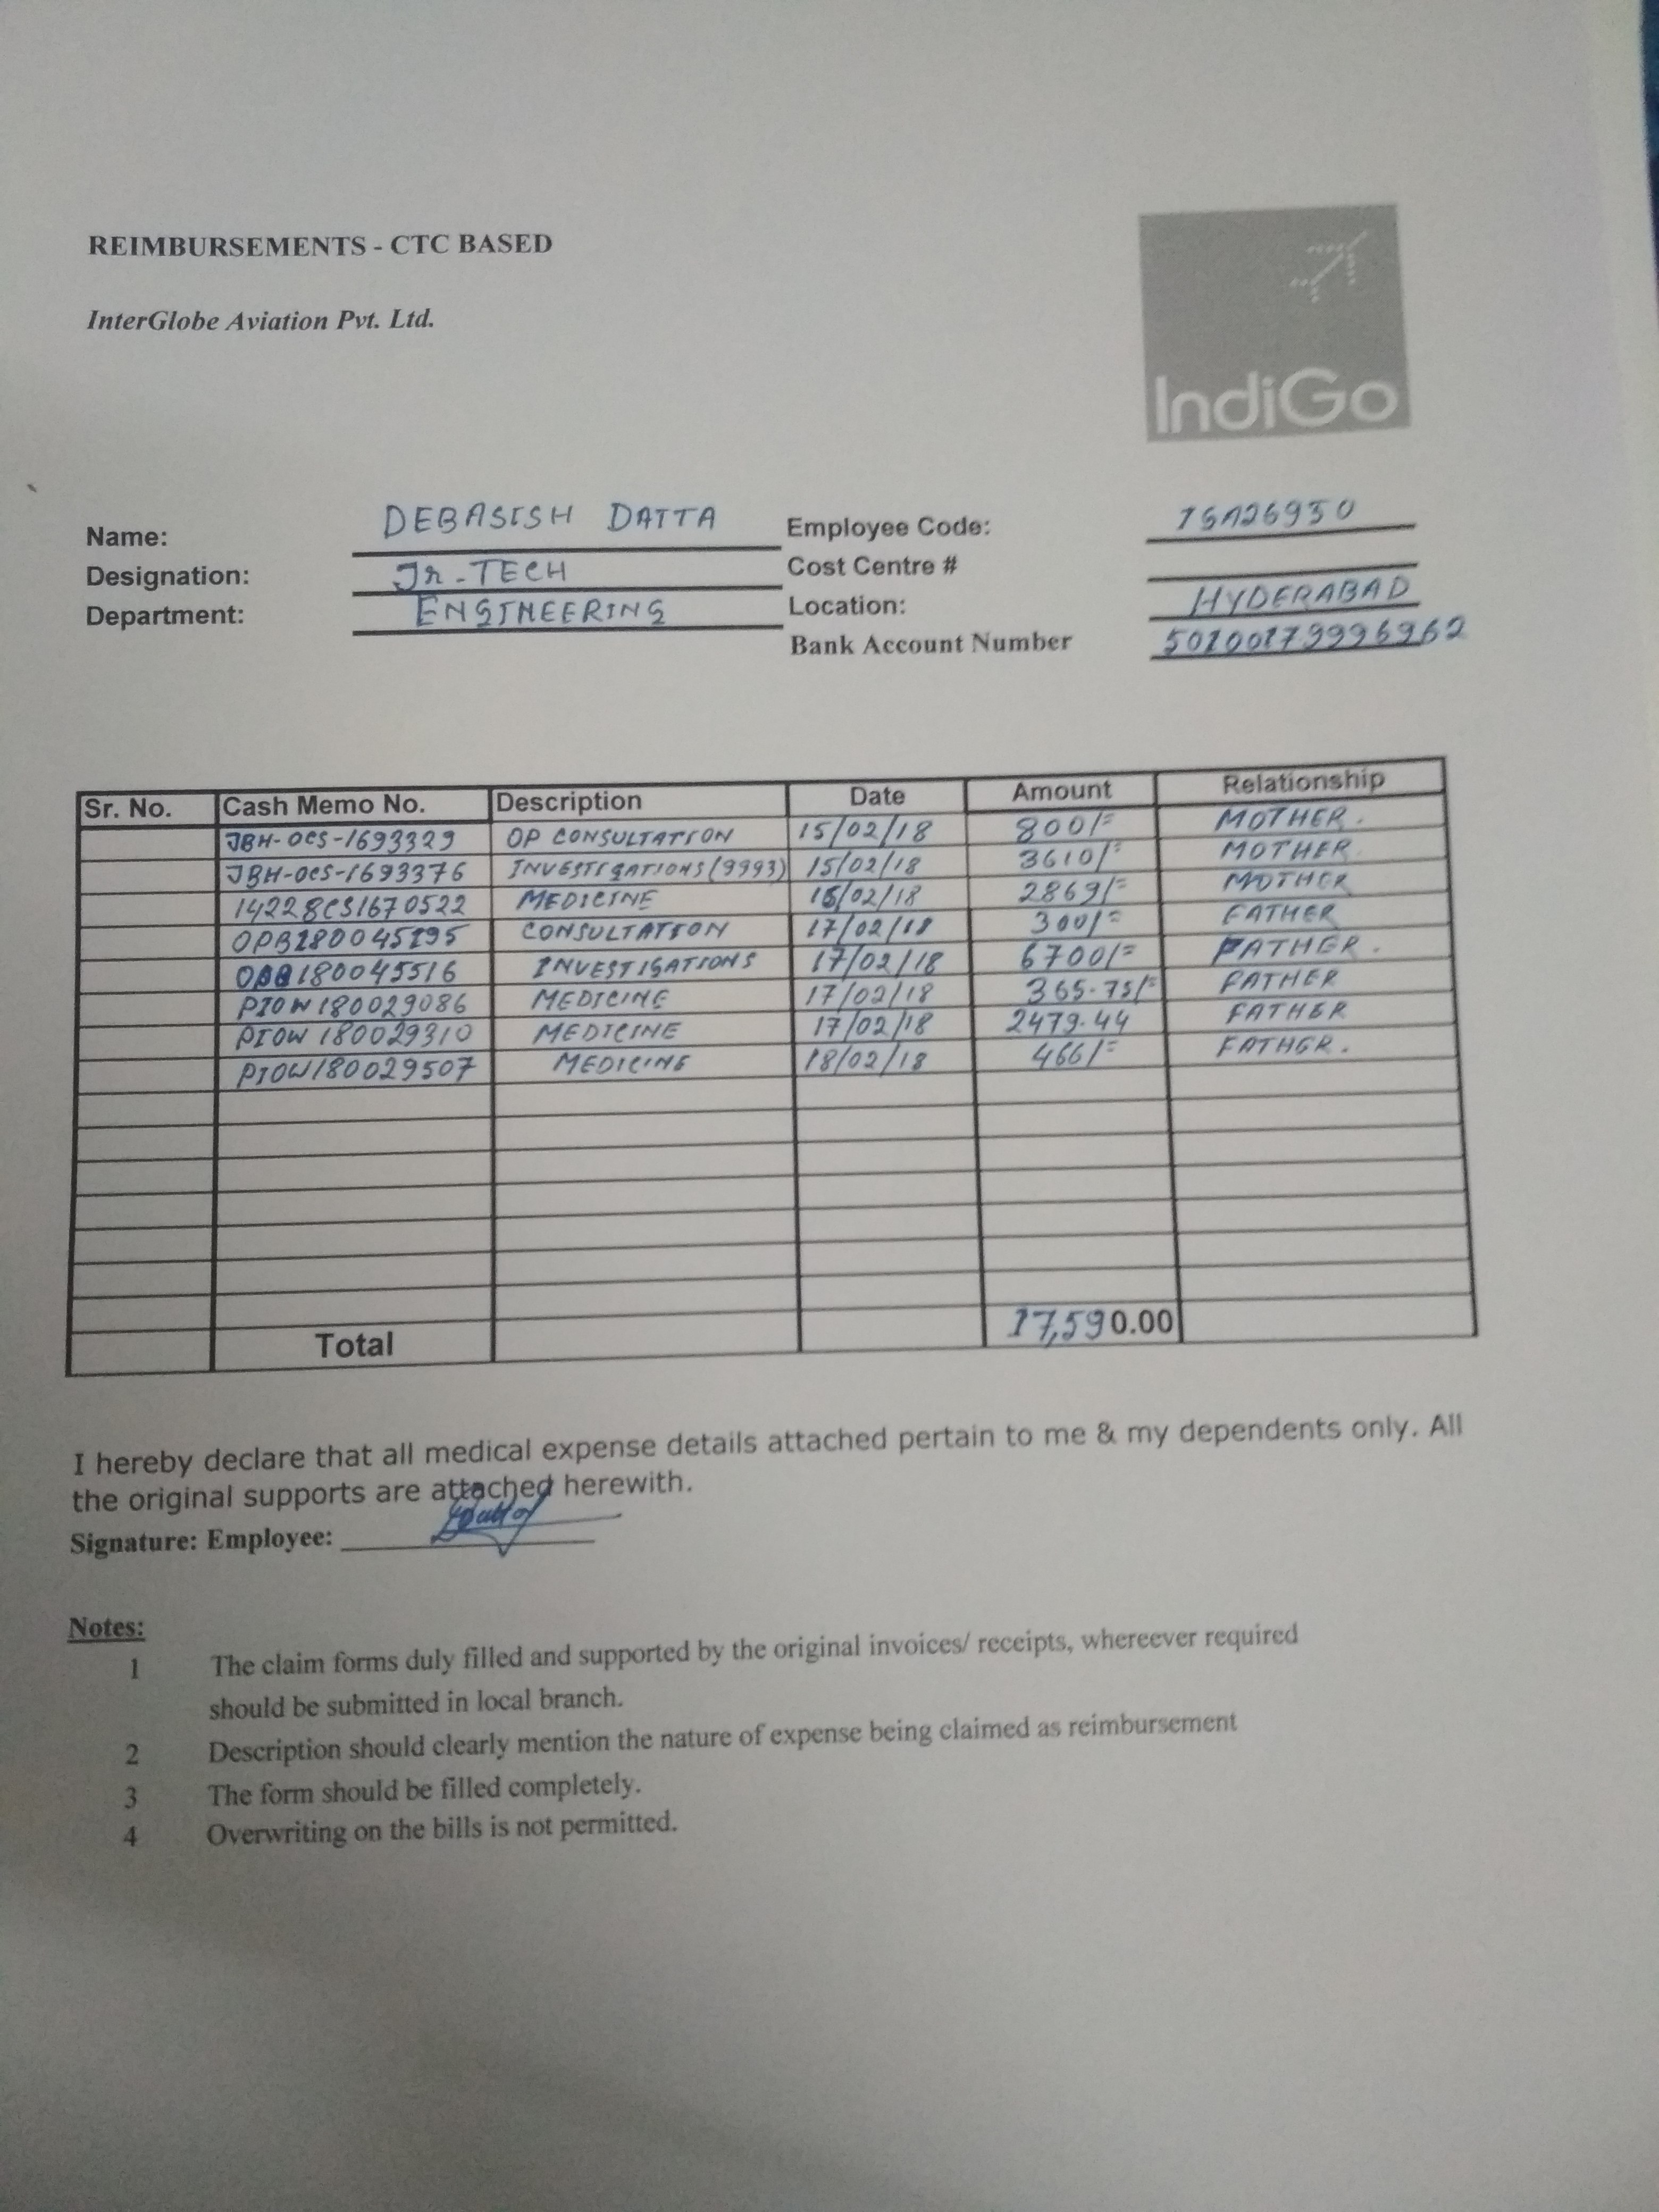 REIMBURSEMENTS - CTC BASED
InterGlobe Aviation Pvt. Ltd.
IndiGo
Name: DEBASISH DATTA Employee Code:
Designation: Jr-TECH Cost Centre #
Department: ENGINEERING Location: HYDERABAD
Bank Account Number 50100179996962
Sr. No. Cash Memo No. Description Date Amount Relationship
JBH-OCS-1693329 OP CONSULTATION 15/02/18 800/= MOTHER.
JBH-OCS-1693376 INVESTIGATIONS (9993) 15/02/18 3610/= MOTHER
14228CS1670522 MEDICINE 15/02/18 2869/= MOTHER
OPB180045195 CONSULTATION 17/02/18 300/= FATHER
OPB180045516 INVESTIGATIONS 17/02/18 6700/= FATHER.
PIOW180029086 MEDICINE 17/02/18 365.75/= FATHER
PIOW180029310 MEDICINE 17/02/18 2479.44 FATHER
PIOW180029507 MEDICINE 18/02/18 466/= FATHER.
Total 17,590.00
I hereby declare that all medical expense details attached pertain to me & my dependents only. All
the original supports are attached herewith.
Signature: Employee:
Notes:
1 The claim forms duly filled and supported by the original invoices/ receipts, whereever required
should be submitted in local branch.
2 Description should clearly mention the nature of expense being claimed as reimbursement
3 The form should be filled completely.
4 Overwriting on the bills is not permitted.